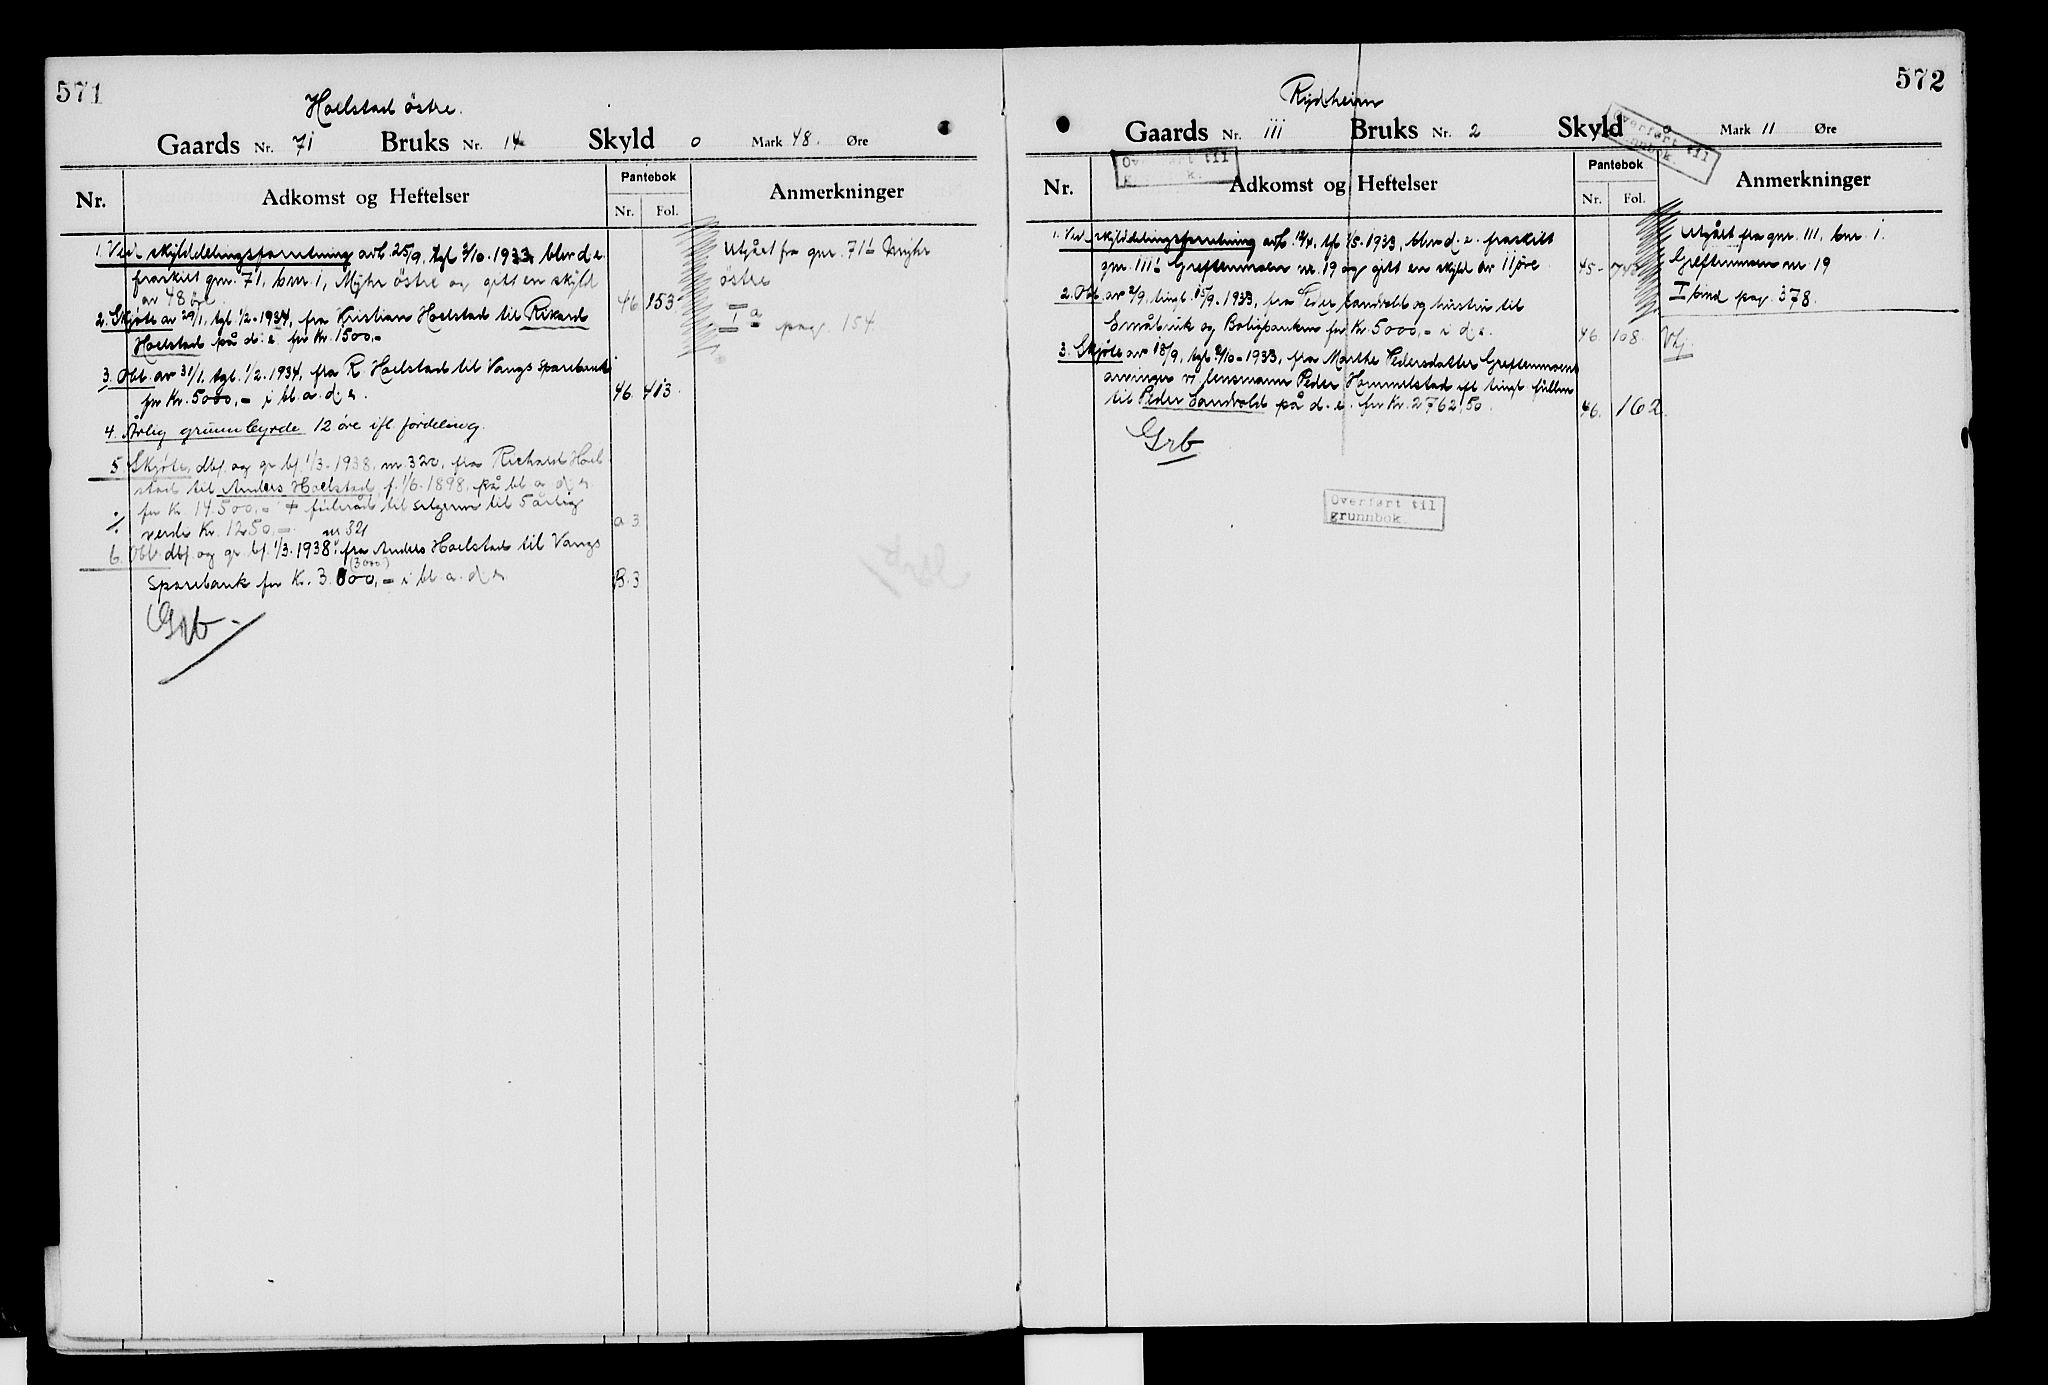 571
Hoelstad östre.
Gaards Nr. 71 Bruks Nr. 14 Skyld 0 Mark 48. Øre
Nr. Adkomst og Heftelser Pantebok Anmerkninger
Nr. Fol.
1. Ved skylddelingsforretning avh. 25/9, tgl. 3/10-1933 blev d. e.
fraskilt gnr. 71, bnr. 1, Myhr östre og gitt en skyld
av 48 öre. 46 153
2. Skjöte av 29/1, tgl. 1/2-1934, fra Kristian Hoelstad til Rikard
Hoelstad på d. e. for Kr. 1500,-
3. Obl. av 31/1, tgl. 1/2.1934, fra R. Hoelstad til Vangs Sparebank
for Kr. 5000,- i bl. a. d. e. 46. 413.
4. Årlig grunnbyrde 12 öre ifl. fordeling.
5 Skjöte, dbf. og gr. bf. 1/3-1938, nr. 320, fra Richard Hoel-
stad til Anders Hoelstad, f. 1/6-1898, på bl. a. d. e.
for Kr. 14.500,- + föderåd til selgeren til 5 årlig
verdi Kr. 1250,- a 3
nr 321
6. Obl. dbf. og gr. bf. 1/3-1938, fra Anders Hoelstad til Vangs
(3000)
Sparebank for Kr. 3.000,- i bl. a. d. e. B. 3
Grb
Utgået fra gnr. 71 Myhr
östre
I a pag. 154
572
Rydheim
Gaards Nr. 111 Bruks Nr. 2 Skyld 0 Mark 11 Øre
Overført til
grunnbok.
Overført til
Nr. Adkomst og Heftelser Pantebok Anmerkninger
Nr. Fol.
1. Ved skylddelingsforretning avh. 12/4, tgl. 1/5-1933, blev d. e. fraskilt
gnr. 111 Greftenmoen nr. 19 og gitt en skyld av 11 öre. 45-
2. Obl. av 2/9, tingl. 15/9-1933, fra Peder Sandvold og hustru til
Småbruk og Boligbanken for Kr. 5000,- i d. e. 46. 108.
3. Skjöte av 18/9, tgl. 2/10-1933, fra Marthe Pedersdatter Greftenmoens
arvinger v/ lensmann Peder Hommelstad efl. tingl. fullm.
til Peder Sandvold på d. e. for Kr. 2762,50. 46. 162.
Grb
Utgått fra gnr. 111, bnr. 1.
Greftenmoen nr. 19
I bind pag. 378.
Overført til
grunnbok.